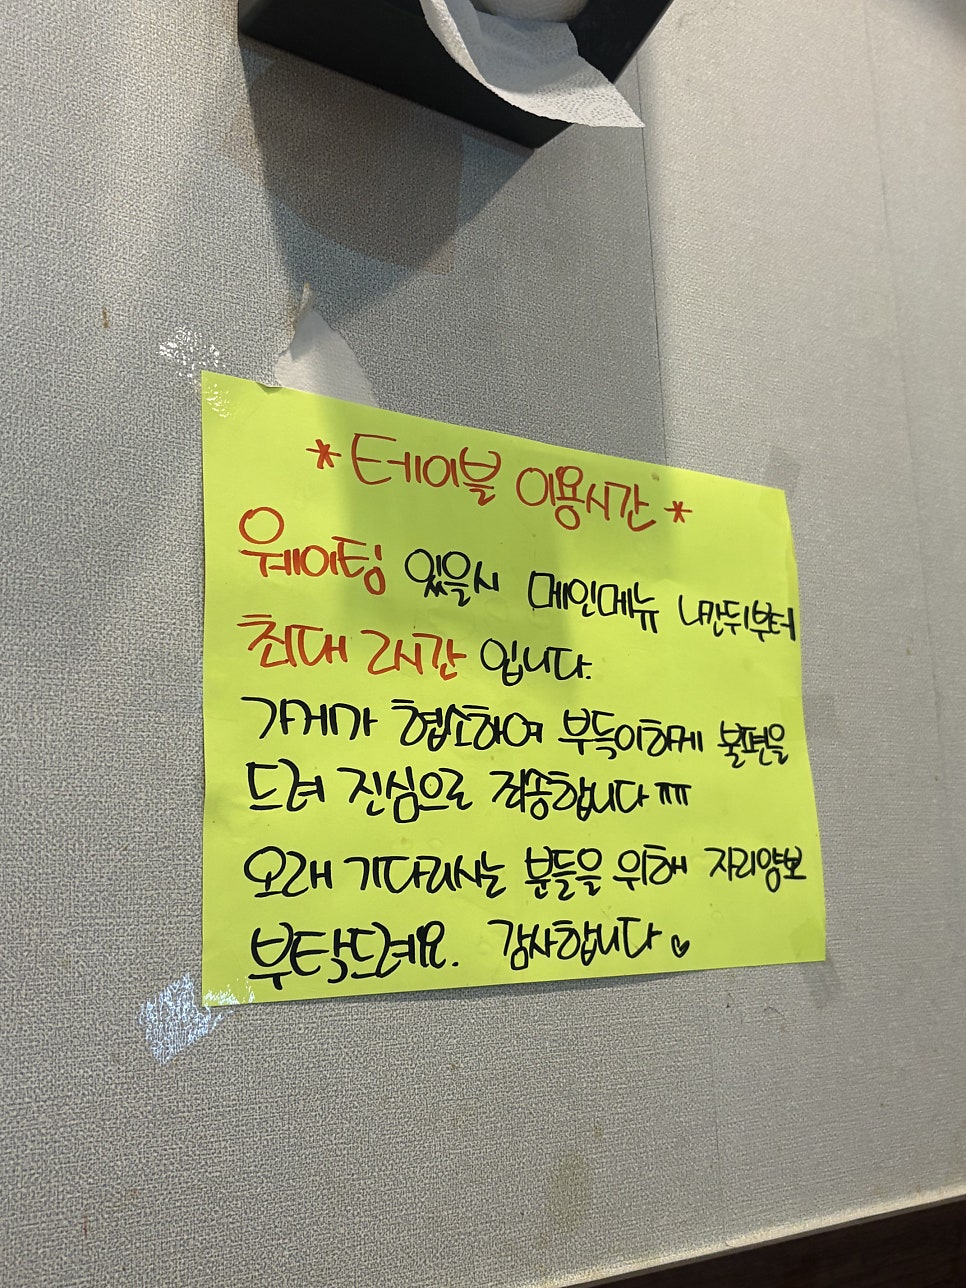 *테이블 이용시간*
웨이팅 있을시 메인메뉴 나간뒤부터
최대 2시간 입니다.
가게가 협소하여 부득이하게 불편을
드려 진심으로 죄송합니다 ㅠㅠ
오래 기다리시는 분들을 위해 자리양보
부탁드려요. 감사합니다♡